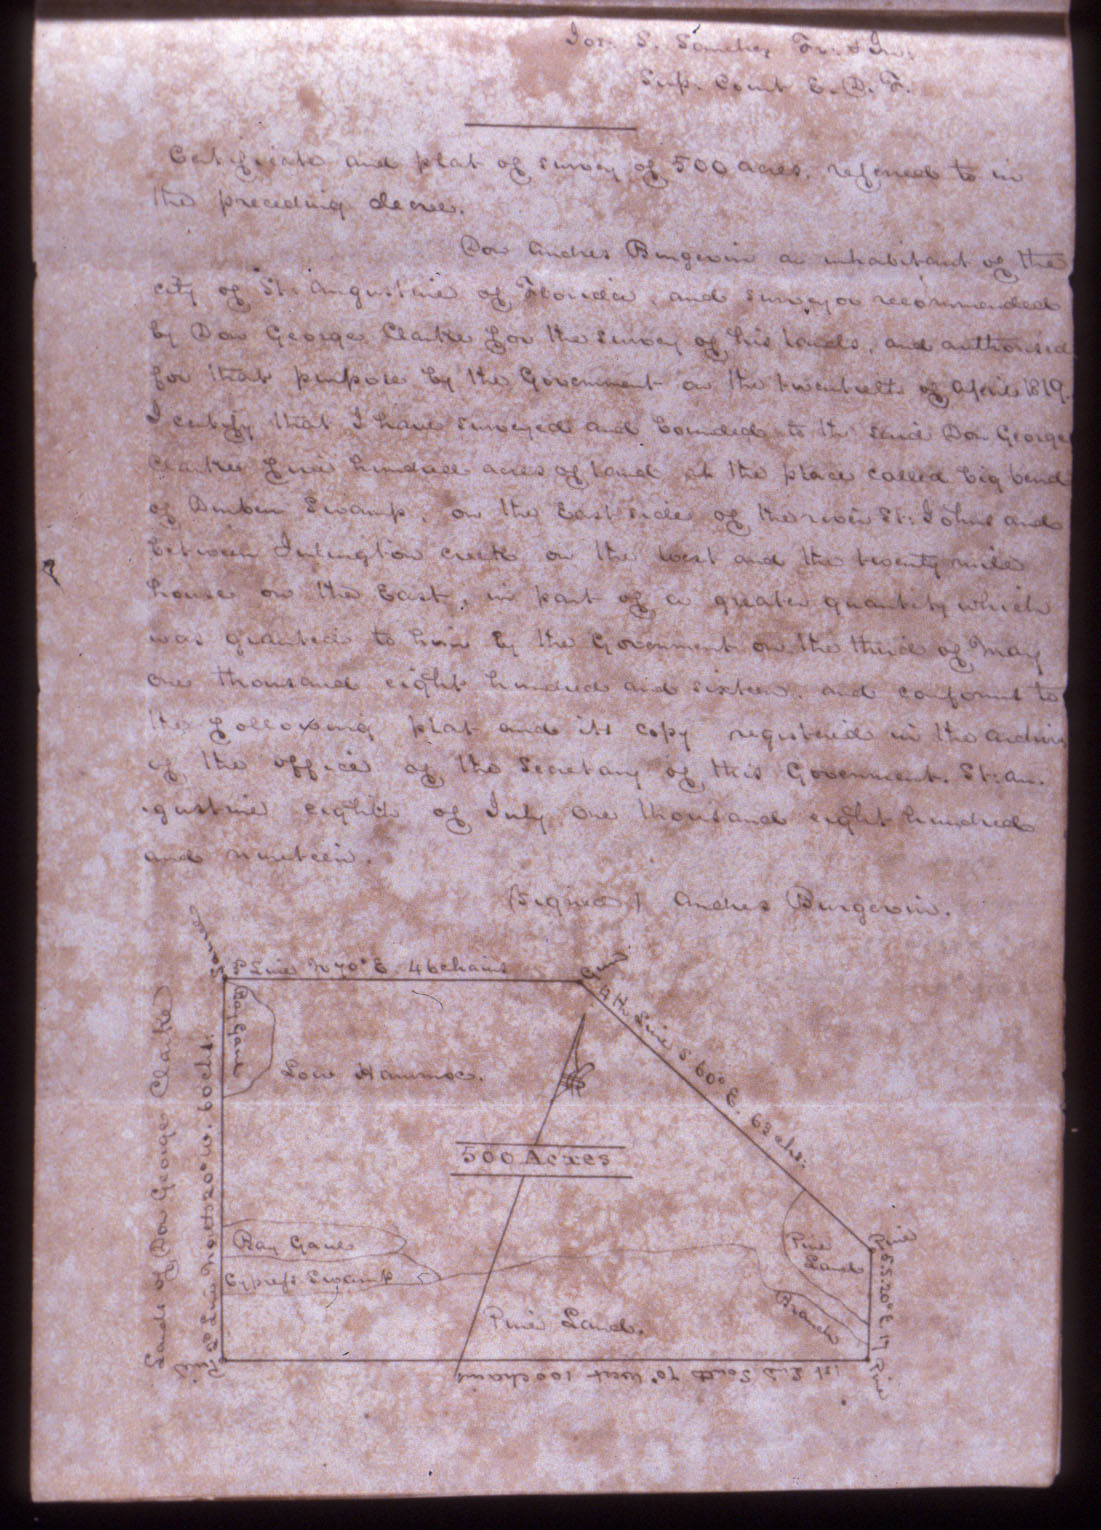 Jos. S. Sanchez Tr. & In.
Sup. Court E. D. F.
Certificate and plat of survey of 500 acres, referred to in
the preceding decree.
Don Andres Burgevin a inhabitant of the
city of St. Augustine of Florida, and surveyor recommended
by Don George Clarke for the survey of his lands, and authorised
for that purpose by the Government on the twentieth of April 1819.
I certify that I have surveyed and bounded to the said Don George
Clarke five hundred acres of land at the place called big bend
of Durbin Swamp, on the East side of the river St. Johns and
between Julington creek on the west and the twenty mile
house on the East, in part of a greater quantity which
was granted to him by the Government on the third of May
one thousand eight hundred and sixteen, and conformt to
the following plat and its copy registered in the archives
of the office of the Secretary of this Government. St. Au-
gustine eighth of July one thousand eight hundred
and nineteen.
Signed) Andres Burgevin.
Line N 70° E 46 chains
Gum
4th Line S 60° E. 63 chs:
Lands of Don George Clarke
Line North 20° W. 60 chs:
Bay Gaul
Low Hammoc.
500 Acres
Bay Gaul
Cypress Swamp
Pine Land
Branch
Pine Land.
Pine
S 20° E 17
Pine
Pine
1st Li: South 70° West 100 chains